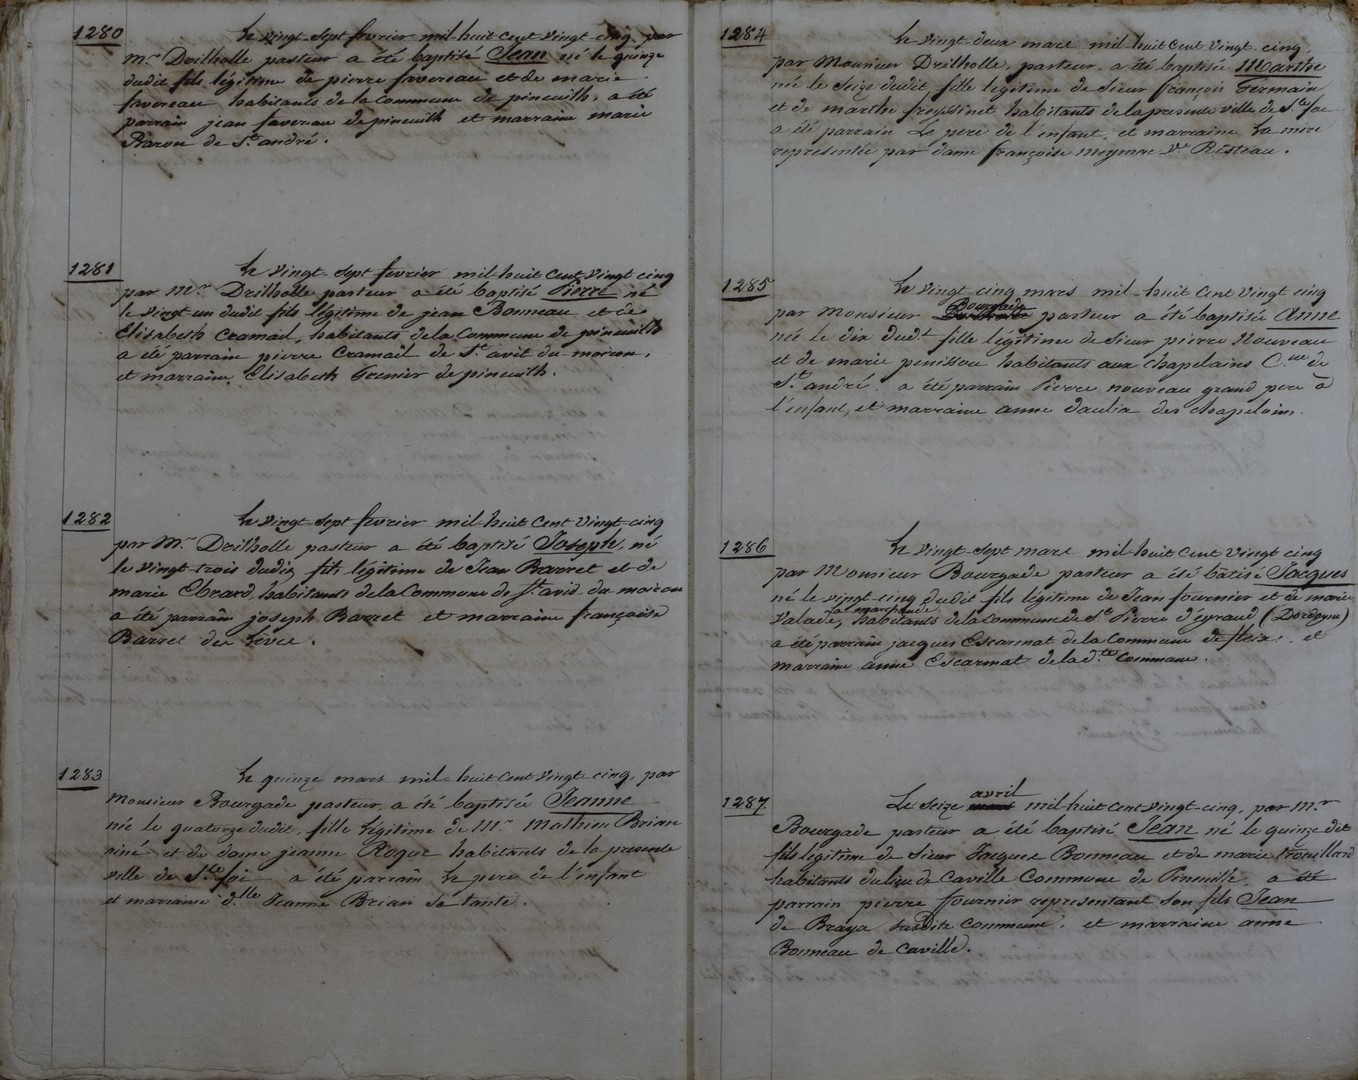 1280
Le vingt-sept fevrier mil huit cent vingt cinq, par
Mr. Drilholle pasteur a été baptisé Jean né le quinze
dudit fils légitime de pierre favereau et de marie
favereau habitants de la commune de pineuilh, a été
parrain jean favereau de pineuilh et marraine marie
Raron de St. andré.
1281
Le vingt-sept fevrier mil-huit cent vingt cinq
par Mr. Drilholle pasteur a été baptisé Pierre né
le vingt un dudit fils légitime de jean Bonneau et de
Elisabeth Cramail, habitants de la Commune de pineuilh
a été parrain pierre Cramail de St. avit du moiron,
et marraine Elisabeth Grenier de pineuilh.
1282
Le vingt-sept fevrier mil-huit cent vingt-cinq
par Mr. Drilholle pasteur a été baptisé Joseph, né
le vingt trois dudit, fils légitime de Jean Barret et de
marie Ebrard, habitants de la Commune de St. avid du moiron
a été parrain joseph Barret et marraine françoise
Barret des Lèves.
1283
Le quinze mars mil-huit cent vingt-cinq, par
Monsieur Bourgade pasteur, a été baptisée Jeanne
née le quatorze dudit, fille légitime de Mr. Mathieu Brian
ainé et de dame jeanne Roque habitants de la presente
ville de Ste foi a été parrain le pere de l'enfant
et marraine d.lle Jeanne Brian sa tante.
1284
Le vingt-deux mars mil-huit cent vingt-cinq,
par Monsieur Drilholle, pasteur, a été baptisée Marthe
née le seize dudit, fille légitime de Sieur françois Germain
et de marthe freyssinet habitants de la presente ville de Ste foi
a été parrain Le pere de l'enfant, et marraine la mere
representée par dame françoise meymac Ve Risteau.
1285
Le vingt-cinq mars mil-huit cent vingt cinq
par Monsieur Bourgade pasteur a été baptisée Anne
née le dix dudt fille légitime de Sieur pierre Nouveau
et de marie penissou habitants aux chapelains C.ne de
St. andré. a été parrain Pierre nouveau grand pere à
l'enfant, et marraine anne daulia des chapelains.
1286
Le vingt-sept mars mil-huit cent vingt cinq
par Monsieur Bourgade pasteur a été batisé Jacques
né le vingt-cinq dudit fils légitime de Jean fournier et de marie
Valade, habitants de la Commune de St. Pierre d'eyraud (Dordogne)
a été parrain jacques Escarmat de la Commune de fleix, et
marraine anne Escarmat de la d.te Commune.
1287
Le Seize avril mil-huit cent vingt-cinq, par Mr
Bourgade pasteur a été baptisé Jean né le quinze dit
fils légitime de Sieur Jacques Bonneau et de marie trouillard
habitants du lieu de Caville Commune de Pineuilh, a été
parrain pierre fournier representant son fils Jean
de Braya susdite commune, et marraine anne
Bonneau de Caville.